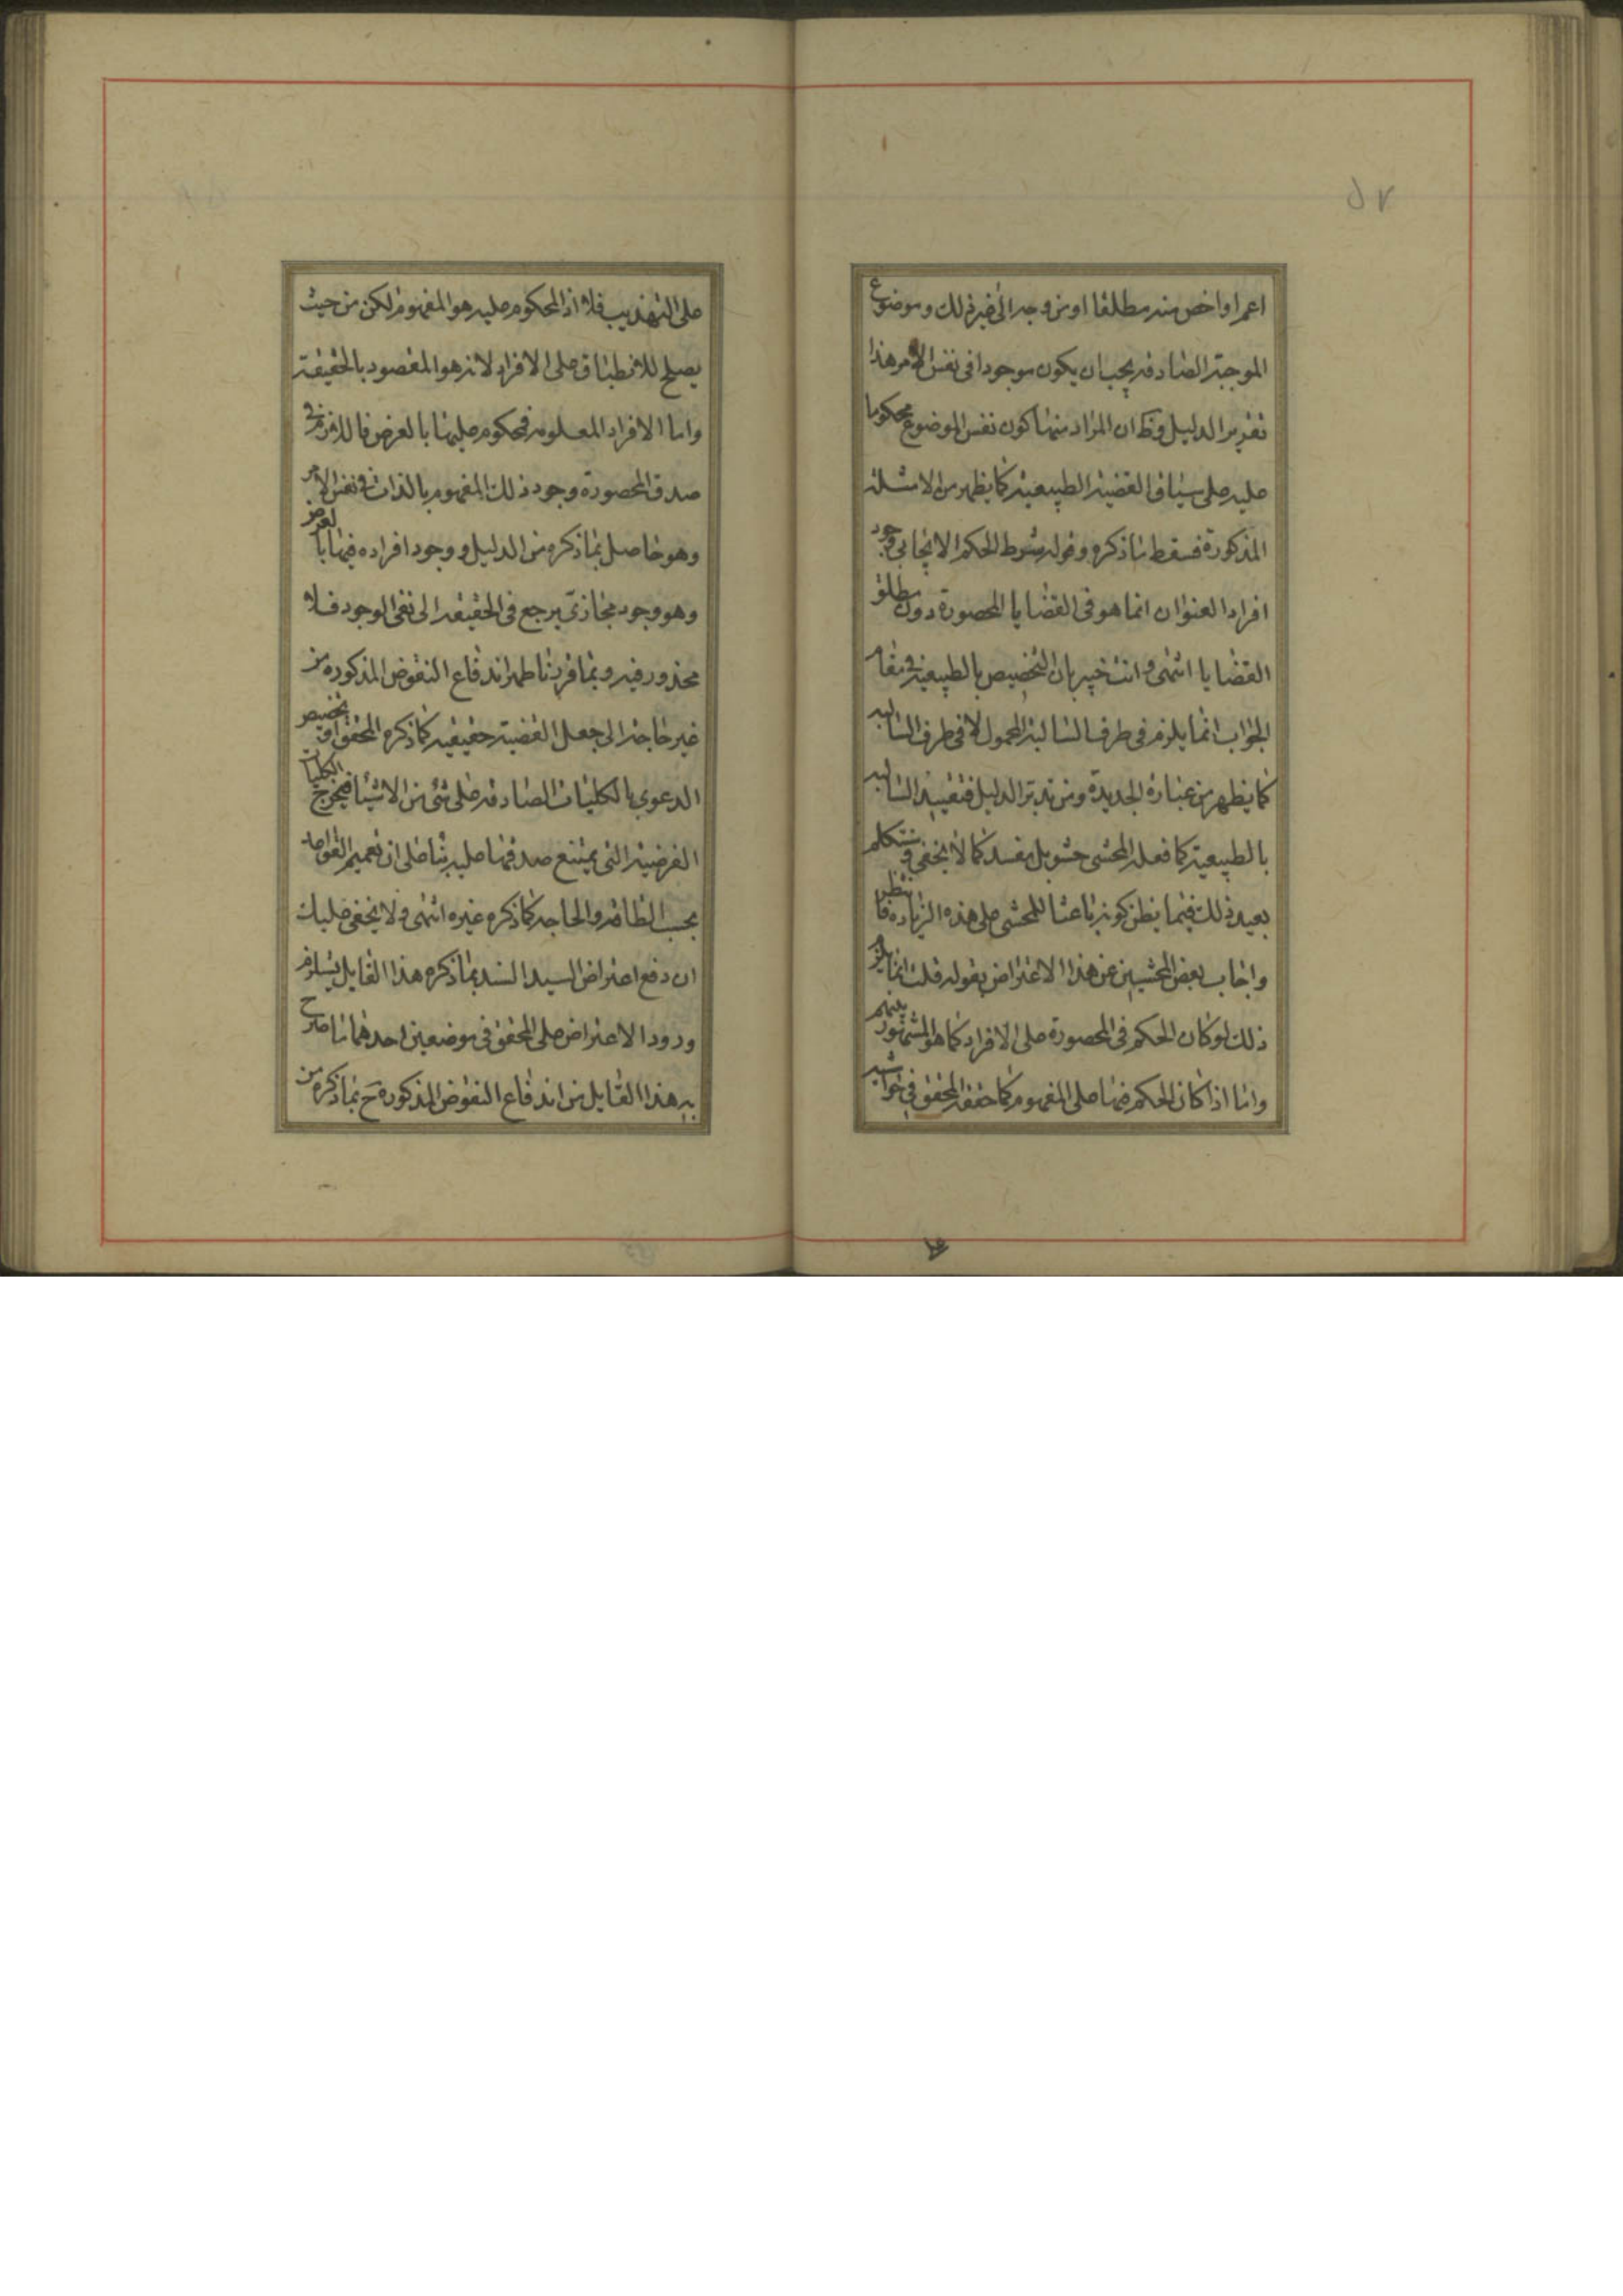 اعم او اخص منه مطلقا او من وجه الى غير ذلك وموضوع
الموجبة الصادقة يجب ان يكون موجودا فى نفس الامر هذا
تقرير الدليل وظ ان المراد منها كون نفس الموضوع محكوما
عليه على سياق القضية الطبيعية كما يظهر من الامثلة
المذكورة فسقط ما ذكره وقوله شرط الحكم الايجابى وجود
افراد العنوان انما هو فى القضايا المحصورة دون مطلق
القضايا انتهى وانت خبير بان التخصيص بالطبيعية فى مقام
الجواب انما يلزم فى طرف السالبة المحمول لا فى طرف السالبه
كما يظهر من عبارة الجديدة ومن تدبر الدليل فتقييد السالبه
بالطبيعية كما فعله المحشى حشو بل مفسد كما لا يخفى وسنتكلم
بعيد ذلك فيما يظن كونه باعثا للمحشى على هذه الزياده فانتظر
واجاب بعض المحشيين عن هذا الاعتراض بقوله قلت انما يلزم
ذلك لو كان الحكم فى المحصورة على الافراد كما هو المشهور بينهم
واما اذا كان الحكم فيها على المفهوم كما حققه المحقق فى حواشيه
على التهذيب فلا اذ المحكوم عليه هو المفهوم لكن من حيث
يصلح للانطباق على الافراد لانه هو المقصود بالحقيقة
واما الافراد المعلومة فمحكوم عليها بالعرض فاللازم فى
صدق المحصورة وجود ذلك المفهوم بالذات فى نفس الامر
وهو حاصل بما ذكره من الدليل ووجود افراده فيها بالعرض
وهو وجود مجازى يرجع فى الحقيقه الى نفى الوجود فلا
محذور فيه وبما قررنا ظهر اندفاع النقوض المذكوره من
غير حاجة الى جعل القضية حقيقيه كما ذكره المحقق او تخصيص
الدعوى بالكليات الصادقه على شئ من الاشياء فيخرج الكليات
الفرضية التى يمتنع صدقها عليه بناء على ان تعميم القواعد
بحسب الطاقه والحاجه كما ذكره غيره انتهى ولا يخفى عليك
ان دفع اعتراض السيد السند بما ذكره هذا القايل يستلزم
ورود الاعتراض على المحقق فى موضعين احدهما ما صرح
به هذا القايل من اندفاع النقوض المذكورة ح بما ذكره من